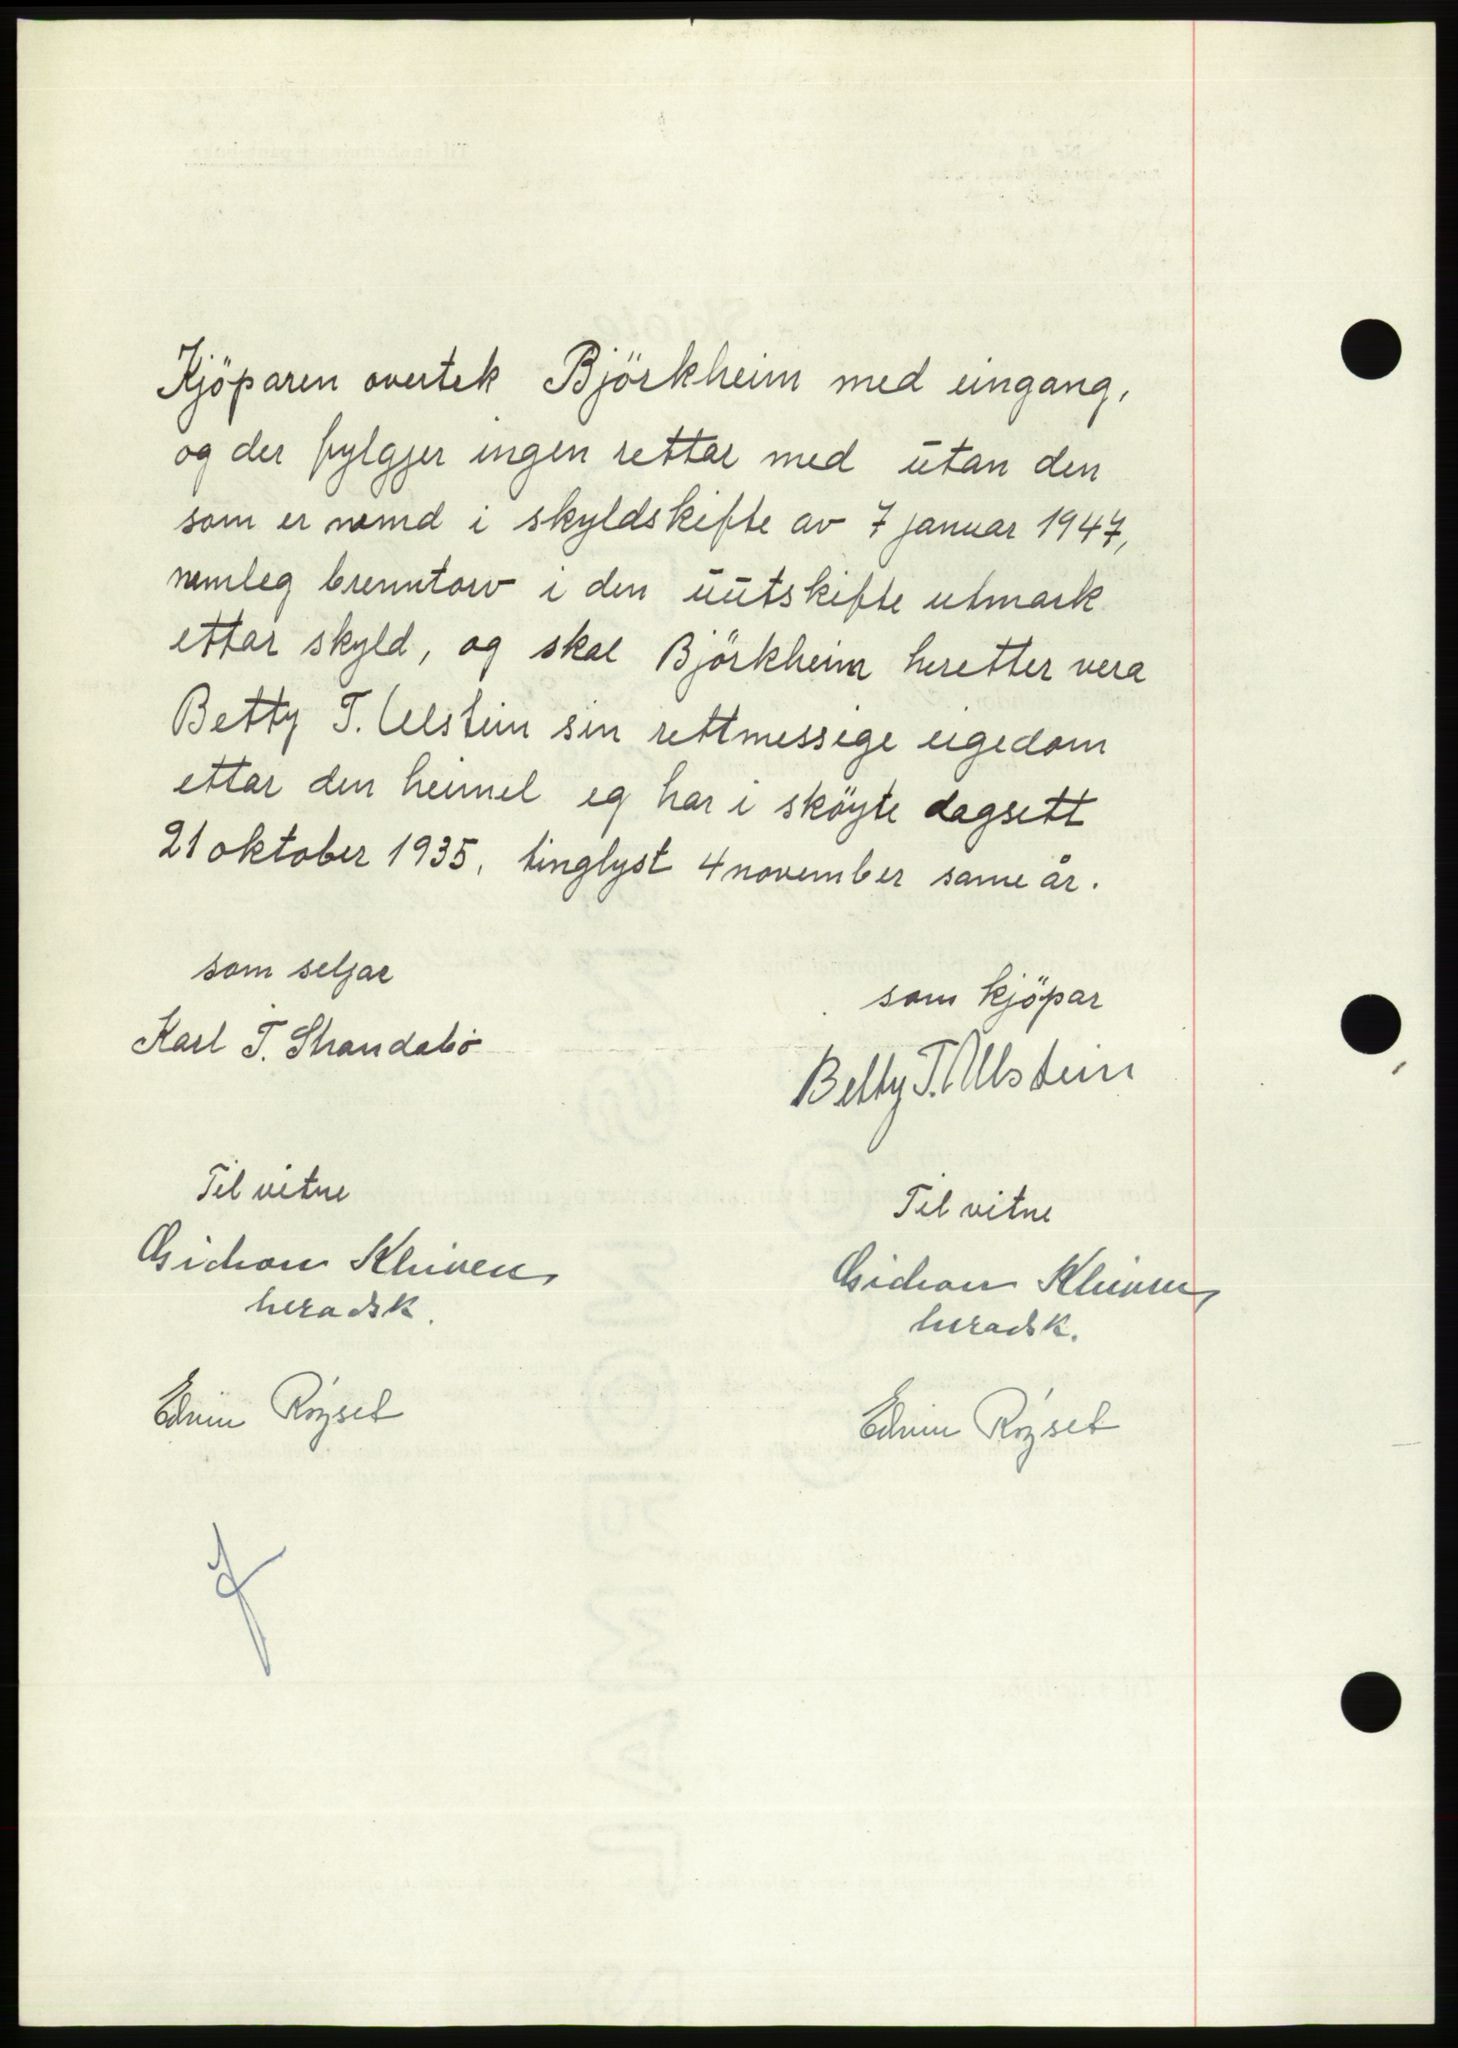 Kjöparen overtek Björkheim med eingang,
og der fylgjer ingen rettar med utan den
som er nemd i skyldskifte av 7 januar 1947,
nemleg brenntorv i den uutskifte utmark
ettar skyld, og skal Björkheim heretter vera
Betty T. Ulstein sin rettmessige eigedom
ettar den heimel eg har i sköyte dagsett
21 oktober 1935, tinglyst 4 november same år.
som seljar
Karl T. Strandabø
som kjöpar
Betty T. Ulstein
Til vitne
Gideon Kleiven
heradsk.
Edvin Röyset
Til vitne
Gideon Kleiven
heradsk.
Edvin Röyset